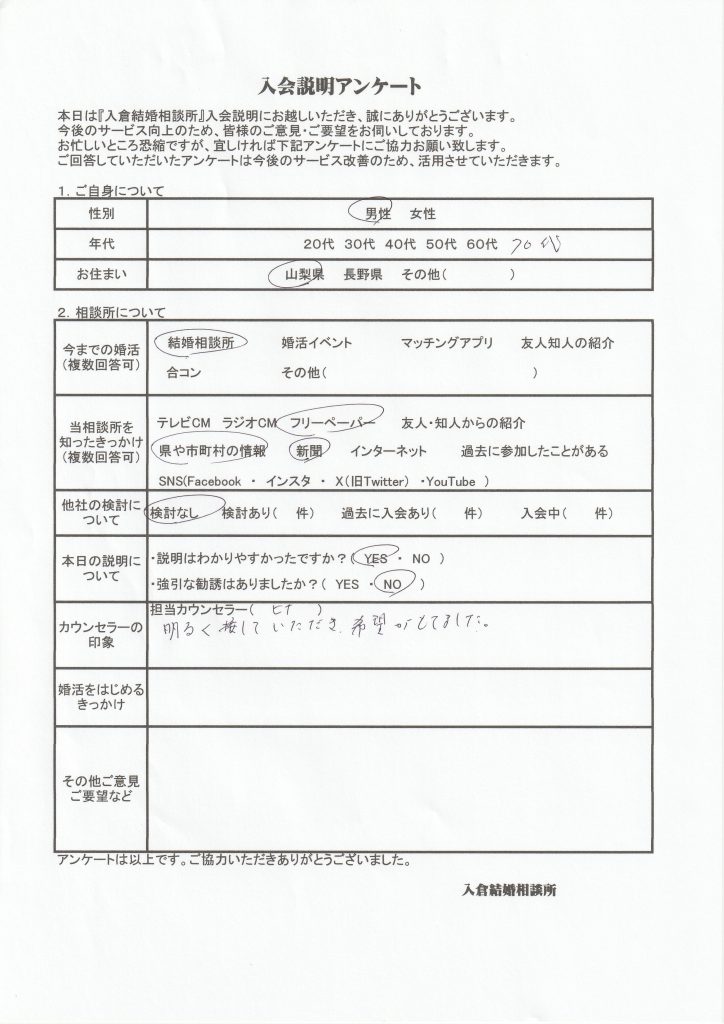 入会説明アンケート
本日は『入倉結婚相談所』入会説明にお越しいただき、誠にありがとうございます。
今後のサービス向上のため、皆様のご意見・ご要望をお伺いしております。
お忙しいところ恐縮ですが、宜しければ下記アンケートにご協力お願い致します。
ご回答していただいたアンケートは今後のサービス改善のため、活用させていただきます。
1. ご自身について
性別 男性 女性
年代 20代 30代 40代 50代 60代 70代
お住まい 山梨県 長野県 その他( )
2. 相談所について
今までの婚活
(複数回答可)
結婚相談所 婚活イベント マッチングアプリ 友人知人の紹介
合コン その他( )
当相談所を
知ったきっかけ
(複数回答可)
テレビCM ラジオCM フリーペーパー 友人・知人からの紹介
県や市町村の情報 新聞 インターネット 過去に参加したことがある
SNS(Facebook ・ インスタ ・ X(旧Twitter) ・YouTube )
他社の検討に
ついて
検討なし 検討あり( 件) 過去に入会あり( 件) 入会中( 件)
本日の説明に
ついて
・説明はわかりやすかったですか?( YES ・ NO )
・強引な勧誘はありましたか?( YES ・ NO )
カウンセラーの
印象
担当カウンセラー( ヒナ )
明るく接していただき、希望がもてました。
婚活をはじめる
きっかけ
その他ご意見
ご要望など
アンケートは以上です。ご協力いただきありがとうございました。
入倉結婚相談所